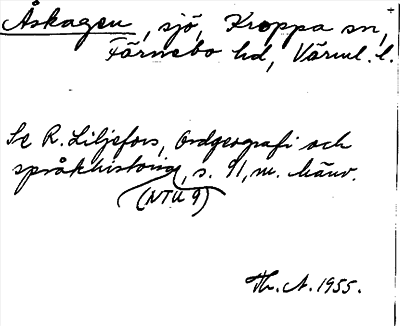 Åskagen, sjö, Kroppa sn,
Färnebo hd, Värml. l.
Se R. Liljefors, Ordgeografi och
språkhistoria, s. 91, m. hänv.
(NTU 9)
Th. A. 1955.